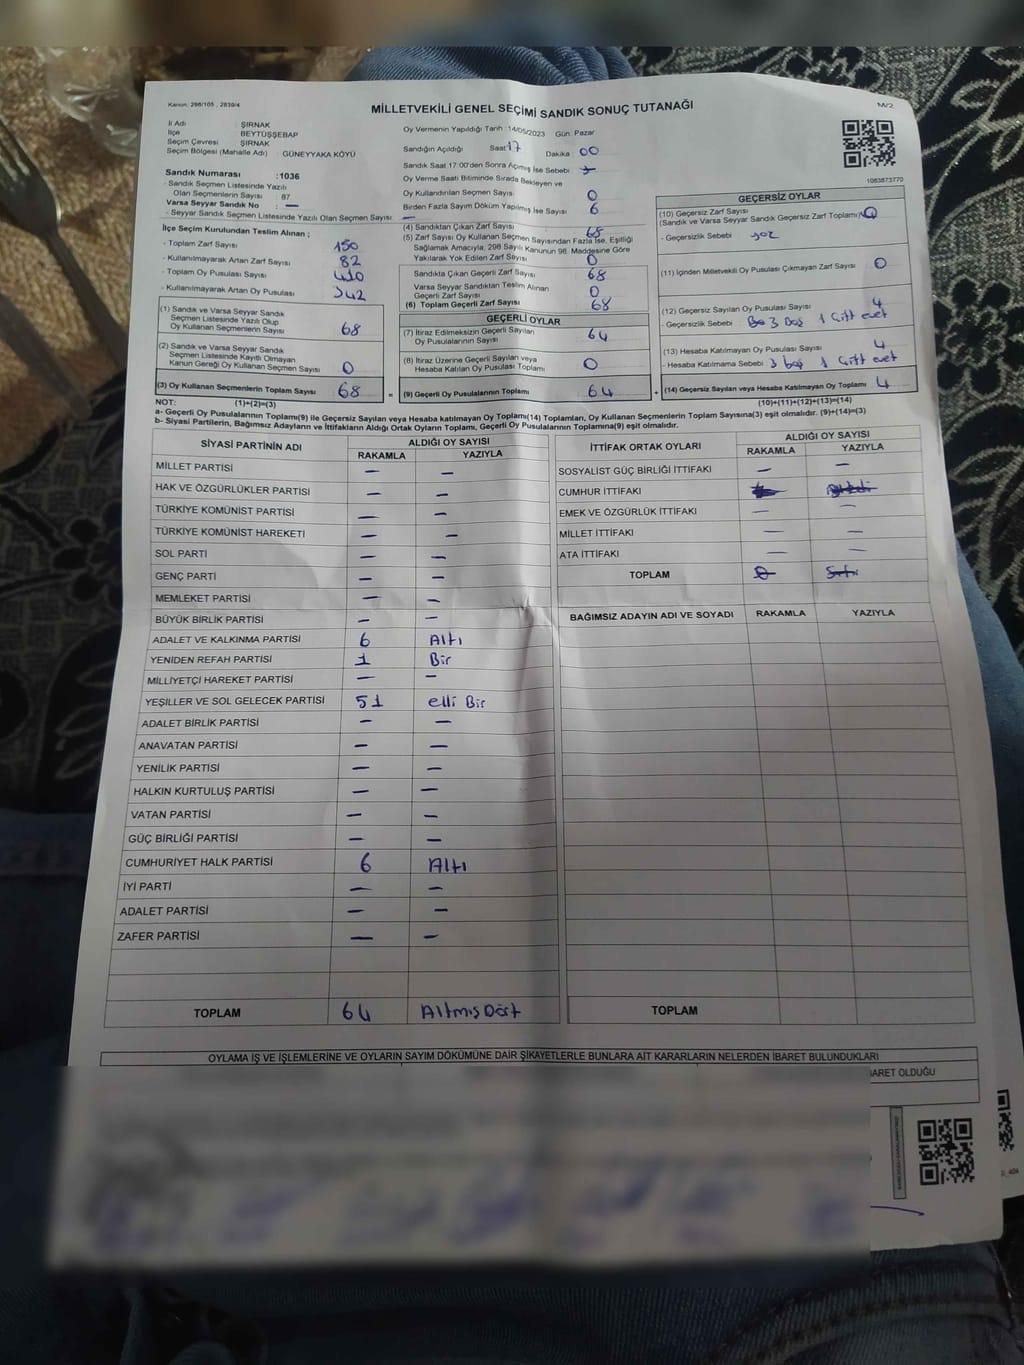 Kanun: 298/105 , 2839/4
MİLLETVEKİLİ GENEL SEÇİMİ SANDIK SONUÇ TUTANAĞI
M/2
İl Adı : ŞIRNAK
İlçe : BEYTÜŞŞEBAP
Seçim Çevresi : ŞIRNAK
Seçim Bölgesi (Mahalle Adı) : GÜNEYYAKA KÖYÜ
Sandık Numarası :1036
- Sandık Seçmen Listesinde Yazılı
Olan Seçmenlerin Sayısı : 87
Varsa Seyyar Sandık No : —
- Seyyar Sandık Seçmen Listesinde Yazılı Olan Seçmen Sayısı: —
İlçe Seçim Kurulundan Teslim Alınan ;
- Toplam Zarf Sayısı : 150
- Kullanılmayarak Artan Zarf Sayısı : 82
- Toplam Oy Pusulası Sayısı : 410
- Kullanılmayarak Artan Oy Pusulası : 342
(1) Sandık ve Varsa Seyyar Sandık
Seçmen Listesinde Yazılı Olup
Oy Kullanan Seçmenlerin Sayısı : 68
(2) Sandık ve Varsa Seyyar Sandık
Seçmen Listesinde Kayıtlı Olmayan
Kanun Gereği Oy Kullanan Seçmen Sayısı : 0
(3) Oy Kullanan Seçmenlerin Toplam Sayısı : 68
Oy Vermenin Yapıldığı Tarih :14/05/2023 Gün: Pazar
Sandığın Açıldığı Saat 17 Dakika : 00
Sandık Saat 17:00'den Sonra Açılmış İse Sebebi :
Oy Verme Saati Bitiminde Sırada Bekleyen ve
Oy Kullandırılan Seçmen Sayısı : 0
Birden Fazla Sayım Döküm Yapılmış İse Sayısı : 6
(4) Sandıktan Çıkan Zarf Sayısı : 68
(5) Zarf Sayısı Oy Kullanan Seçmen Sayısından Fazla İse, Eşitliği
Sağlamak Amacıyla, 298 Sayılı Kanunun 98. Maddesine Göre
Yakılarak Yok Edilen Zarf Sayısı : 0
Sandıkta Çıkan Geçerli Zarf Sayısı : 68
Varsa Seyyar Sandıktan Teslim Alınan
Geçerli Zarf Sayısı : 0
(6) Toplam Geçerli Zarf Sayısı : 68
GEÇERLİ OYLAR
(7) İtiraz Edilmeksizin Geçerli Sayılan
Oy Pusulalarının Sayısı : 64
(8) İtiraz Üzerine Geçerli Sayılan veya
Hesaba Katılan Oy Pusulası Toplamı : 0
= (9) Geçerli Oy Pusulalarının Toplamı : 64
1083873770
GEÇERSİZ OYLAR
(10) Geçersiz Zarf Sayısı
(Sandık ve Varsa Seyyar Sandık Geçersiz Zarf Toplamı) : 0
- Geçersizlik Sebebi : yok
(11) İçinden Milletvekili Oy Pusulası Çıkmayan Zarf Sayısı : 0
(12) Geçersiz Sayılan Oy Pusulası Sayısı : 4
- Geçersizlik Sebebi : 3 Boş 1 Çift evet
(13) Hesaba Katılmayan Oy Pusulası Sayısı : 4
- Hesaba Katılmama Sebebi : 3 boş 1 Çift evet
+ (14) Geçersiz Sayılan veya Hesaba Katılmayan Oy Toplamı : 4
NOT: (1)+(2)=(3)
(10)+(11)+(12)+(13)=(14)
a- Geçerli Oy Pusulalarının Toplamı(9) ile Geçersiz Sayılan veya Hesaba katılmayan Oy Toplamı(14) Toplamları, Oy Kullanan Seçmenlerin Toplam Sayısına(3) eşit olmalıdır. (9)+(14)=(3)
b- Siyasi Partilerin, Bağımsız Adayların ve İttifakların Aldığı Ortak Oyların Toplamı, Geçerli Oy Pusulalarının Toplamına(9) eşit olmalıdır.
SİYASİ PARTİNİN ADI
ALDIĞI OY SAYISI
RAKAMLA YAZIYLA
MİLLET PARTİSİ — —
HAK VE ÖZGÜRLÜKLER PARTİSİ — —
TÜRKİYE KOMÜNİST PARTİSİ — —
TÜRKİYE KOMÜNİST HAREKETİ — —
SOL PARTİ — —
GENÇ PARTİ — —
MEMLEKET PARTİSİ — —
BÜYÜK BİRLİK PARTİSİ — —
ADALET VE KALKINMA PARTİSİ 6 Altı
YENİDEN REFAH PARTİSİ 1 Bir
MİLLİYETÇİ HAREKET PARTİSİ — —
YEŞİLLER VE SOL GELECEK PARTİSİ 51 elli Bir
ADALET BİRLİK PARTİSİ — —
ANAVATAN PARTİSİ — —
YENİLİK PARTİSİ — —
HALKIN KURTULUŞ PARTİSİ — —
VATAN PARTİSİ — —
GÜÇ BİRLİĞİ PARTİSİ — —
CUMHURİYET HALK PARTİSİ 6 Altı
İYİ PARTİ — —
ADALET PARTİSİ — —
ZAFER PARTİSİ — —
TOPLAM 64 Altmış Dört
İTTİFAK ORTAK OYLARI
ALDIĞI OY SAYISI
RAKAMLA YAZIYLA
SOSYALİST GÜÇ BİRLİĞİ İTTİFAKI — —
CUMHUR İTTİFAKI
EMEK VE ÖZGÜRLÜK İTTİFAKI — —
MİLLET İTTİFAKI — —
ATA İTTİFAKI — —
TOPLAM
BAĞIMSIZ ADAYIN ADI VE SOYADI RAKAMLA YAZIYLA
TOPLAM
OYLAMA İŞ VE İŞLEMLERİNE VE OYLARIN SAYIM DÖKÜMÜNE DAİR ŞİKAYETLERLE BUNLARA AİT KARARLARIN NELERDEN İBARET BULUNDUKLARI
BARET OLDUĞU